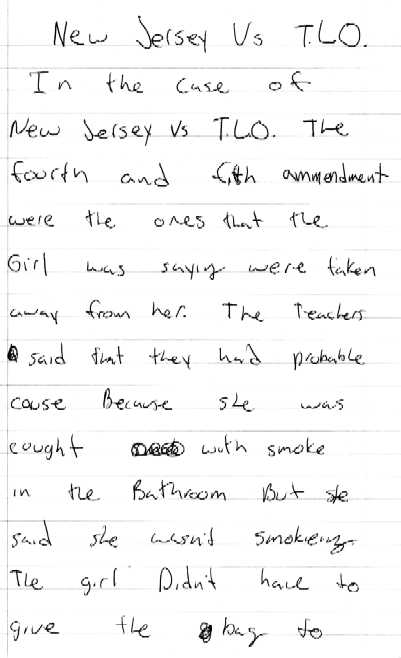 New Jersey Vs T.L.O.
In the case of
New Jersey Vs T.L.O. The
fourth and fifth ammendment
were the ones that the
Girl was saying were taken
away from her. The Teachers
said that they had probable
cause Because she was
cought with smoke
in the Bathroom But she
said she wasn't smokeing.
The girl Didn't have to
give the bag to